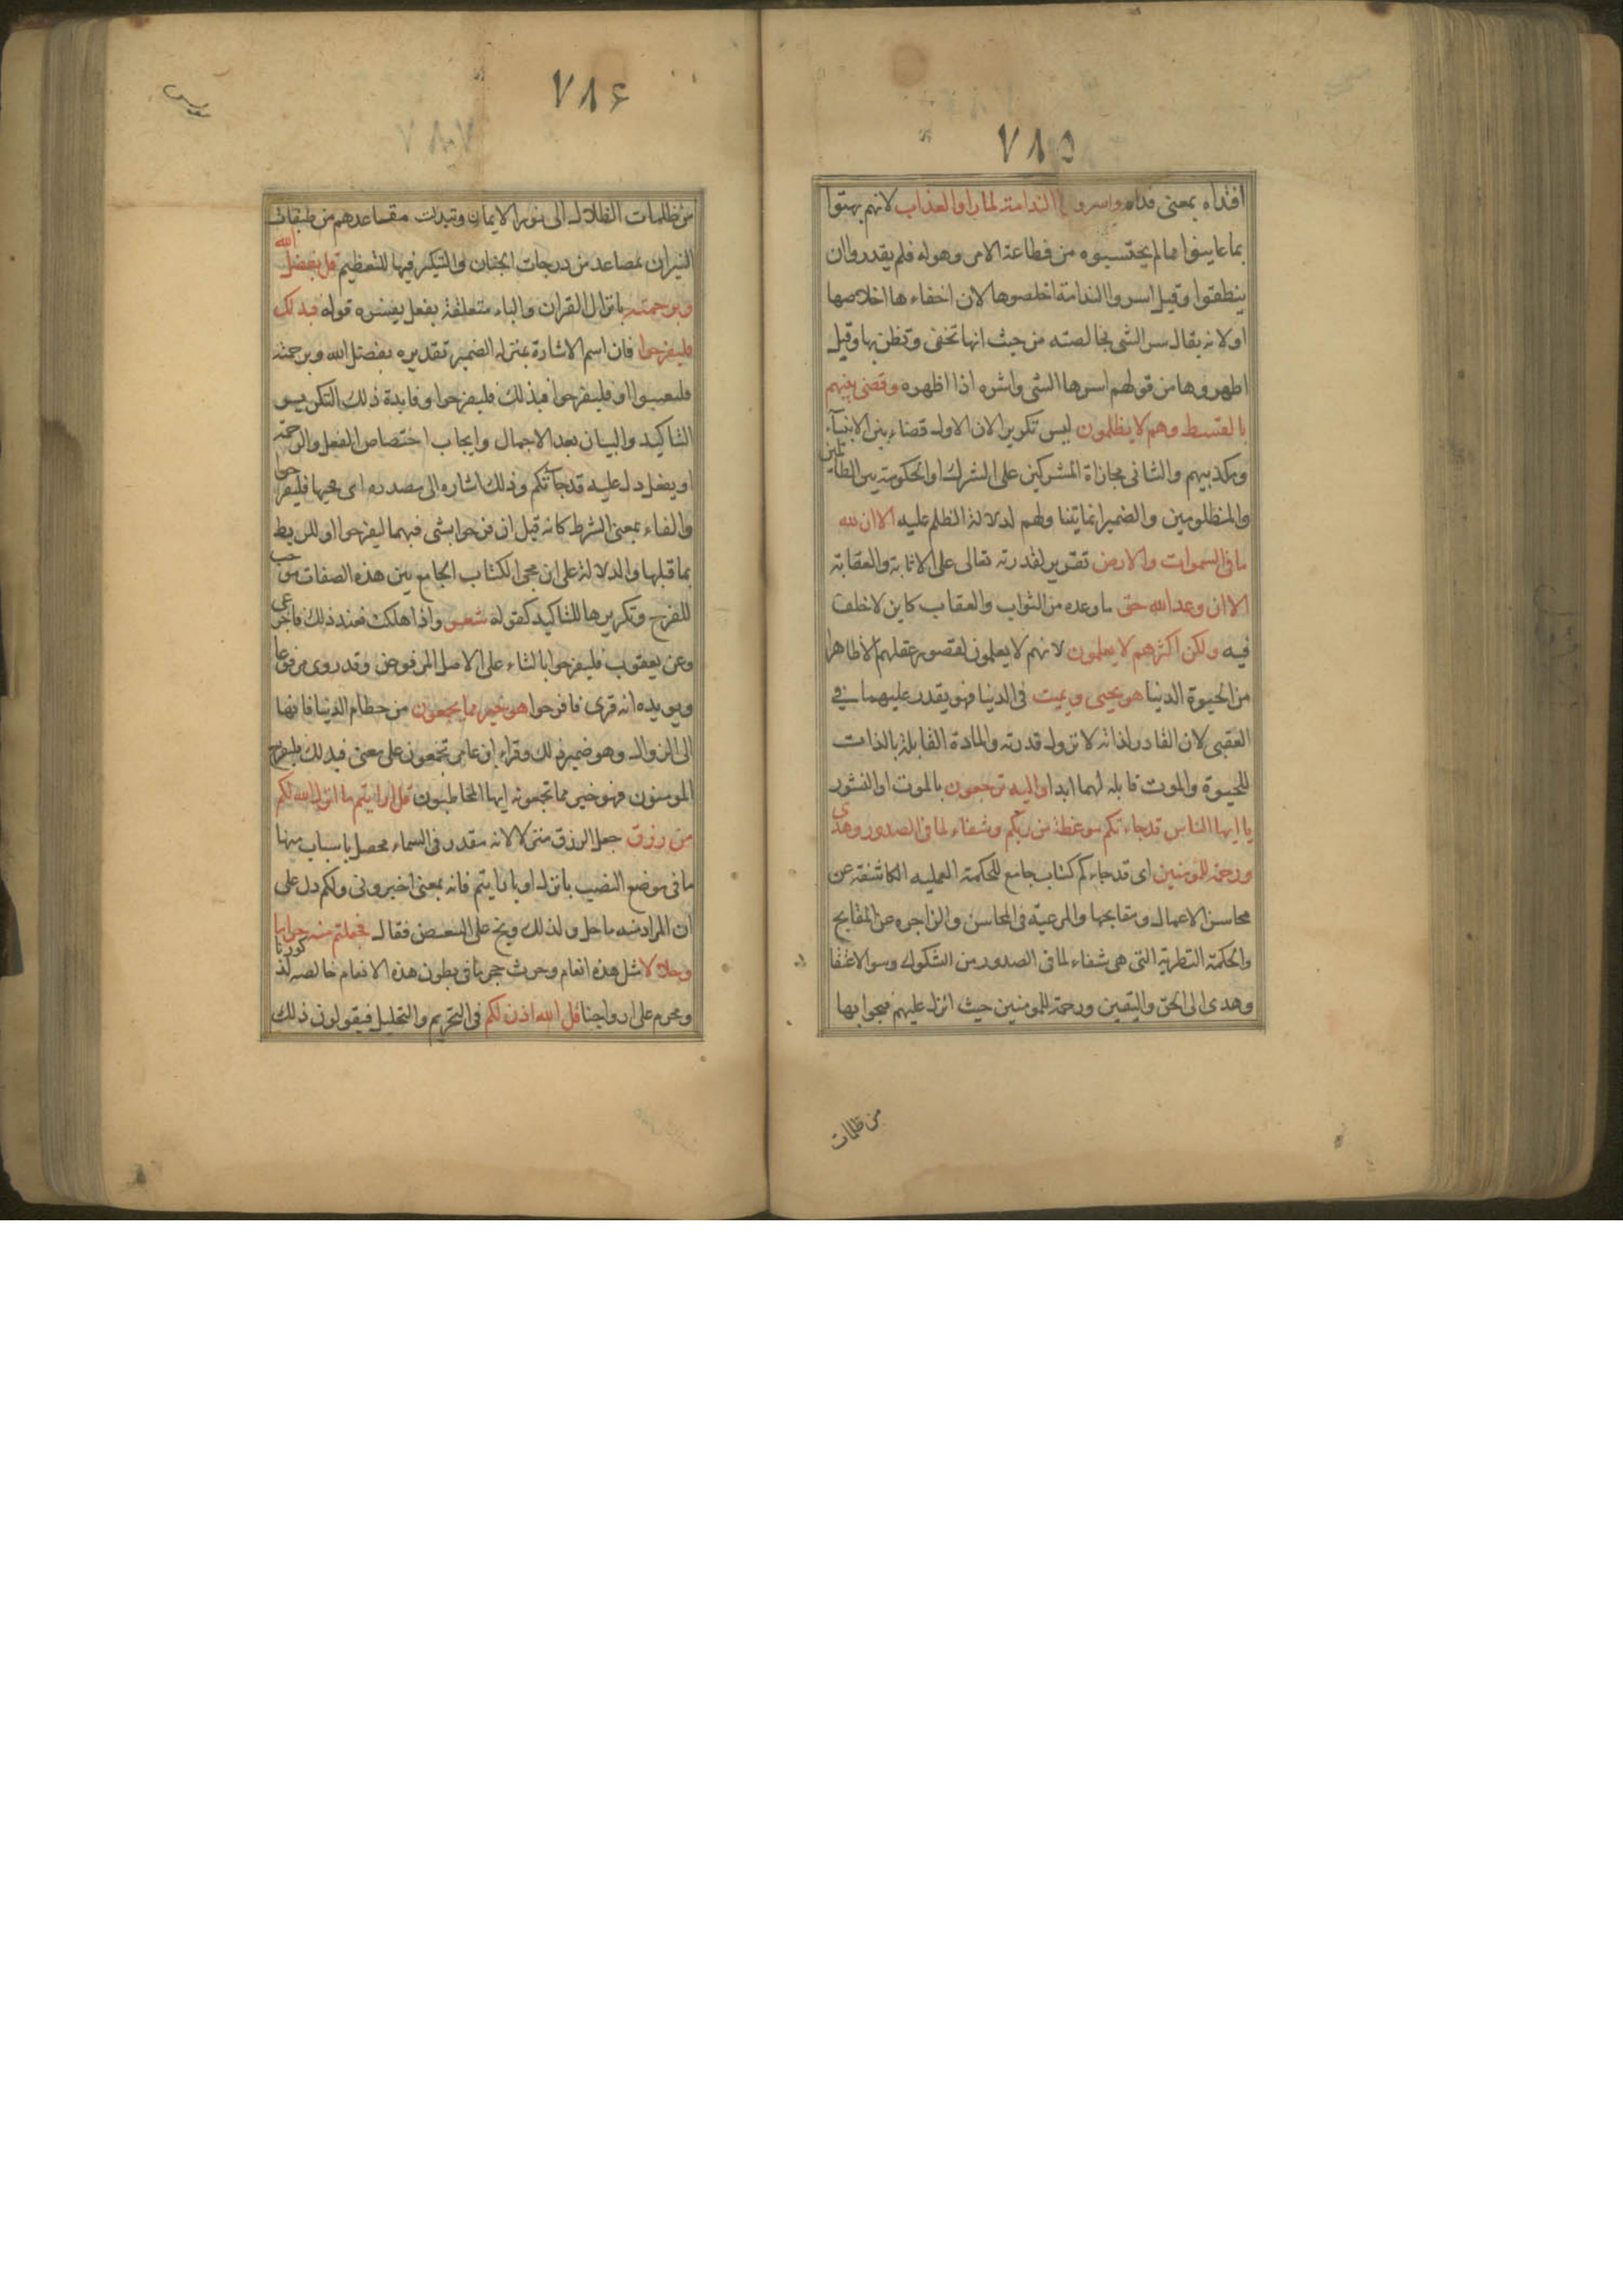 ٧٨٥
افتداه بمعنى فداه واسروا الندامة لما راوا العذاب لانهم بهتوا
بما عاينوا مما لم يحتسبوه من فظاعة الامر وهوله فلم يقدروا ان
ينطقوا وقيل اسروا الندامة اخلصوها لان اخفاءها اخلاصها
او لانه يقال سر الشى لخالصته من حيث انها تخفى وتظن بها وقيل
اظهروها من قولهم اسرها الشى واشره اذا اظهره وقضى بينهم
بالقسط وهم لا يظلمون ليس تكريرا لان الاول قضاء بين الانبيآء
ومكذبيهم والثانى مجازاة المشركين على الشرك او الحكومة بين الظالمين
والمظلومين والضمير انما يتنا ولهم لدلالة الظلم عليه الا ان لله
ما فى السموات والارض تقرير لقدرته تعالى على الاثابة والعقابة
الا ان وعد الله حق ما وعده من الثواب والعقاب كاين لا خلف
فيه ولكن اكثرهم لا يعلمون لانهم لا يعلمون لقصور عقلهم الا ظاهرا
من الحيوة الدنيا هو يحيى ويميت فى الدنيا فهو يقدر عليهما فى
العقبى لان القادر لذاته لا تزول قدرته والمادة القابلة بالذات
للحيوة والموت قابلة لهما ابدا واليه ترجعون بالموت او النشور
يا ايها الناس قد جاءتكم موعظة من ربكم وشفاء لما فى الصدور وهدى
ورحمة للمومنين اى قد جاءكم كتاب جامع للحكمة العمليه الكاشفة عن
محاسن الاعمال ومقابحها والمرعية فى المحاسن والزاجره عن المقابح
والحكمة النظرية التى هى شفاء لما فى الصدور من الشكوك وسوا الاعتقا
وهدى الى الحق واليقين ورحمة للمومنين حيث انزلت عليهم فنجوا بها
من ظلمات
٧٨٦
من ظلمات الضلال الى نور الايمان وتبدلت مقساعدهم من طبقات
النيران بمصاعد من درجات الجنان والتنكير فيها للتعظيم قل بفضل الله
وبرحمته بانزال القران والباء متعلقة بفعل يفسره قوله فبدلك
فليفرحوا فان اسم الاشارة بمنزله الضمير تقديره بفضل الله وبرحمته
فليعسوا او فليفرحوا فبذلك فليفرحوا وفايدة ذلك التكرير
التاكيد والبيان بعد الاجمال وايجاب اختصاص الفعل والرحمة
او بفعل دل عليه قد جآتكم وذلك اشاره الى مصدره اى بمجيها فليفرحوا
والفاء بمعنى الشرط كانه قيل ان فرحوا بشى فبهما ليفرحوا او للربط
بما قبلها والدلالة على ان مجى الكتاب الجامع بين هذه الصفات موجب
للفرح وتكريرها للتاكيد كقوله شعر واذا هلكت فعند ذلك فاجزعى
وعن يعقوب فليفرحوا بالتاء على الاصل المرفوض وقد روى مرفوعا
ويويده انه قرى فافرحوا هو خير مما يجمعون من حطام الدنيا فانها
الى الزوال وهو ضمير ذلك وقراء ابن عامر تجمعون على معنى فبدلك فليفرح
المومنون فهو خير مما تجمعونه ايها المخاطبون قل ارايتم ما انزل الله لكم
من رزق جعل الرزق منزلا لانه مقدر فى السماء محصل باسباب منها
ما فى موضع النصب بانزل او بارايتم فانه بمعنى اخبرونى ولكم دل على
ان المراد منه ما حل ولذلك وبخ على التبعيض فقال فجعلتم منه حراما
وحلالا مثل هذه انعام وحرث حجر ما فى بطون هذه الانعام خالصه لذكورنا
ومحرم على ازواجنا قل الله اذن لكم فى التحريم والتحليل فيقولون ذلك